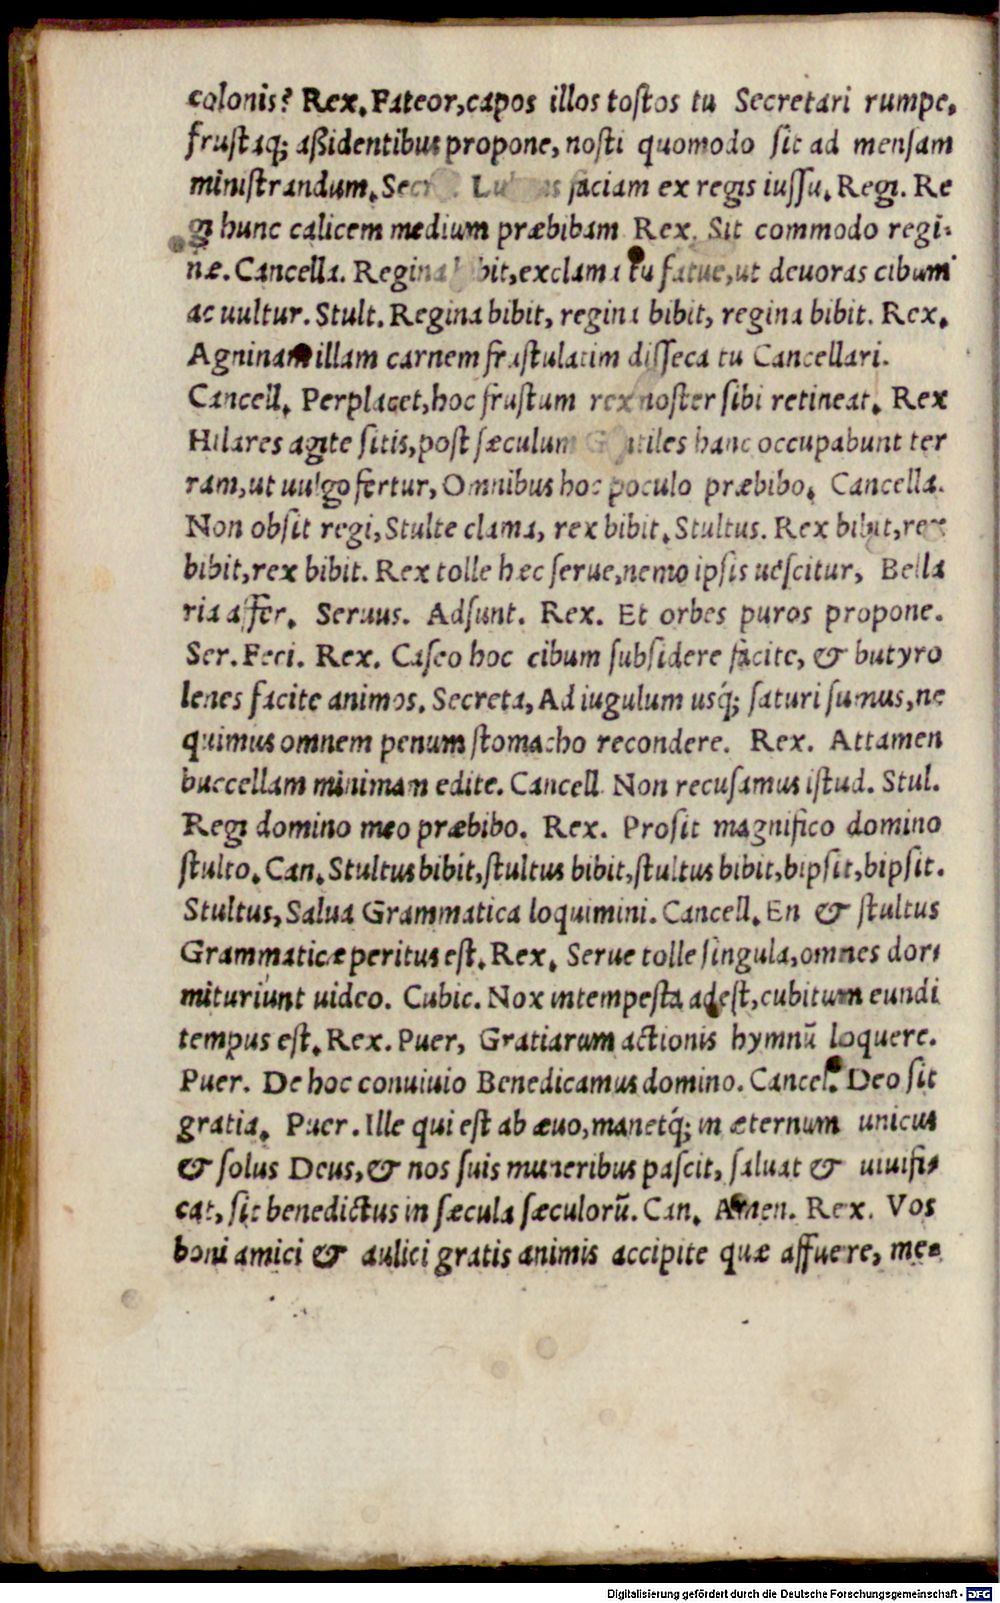 colonis? Rex. Fateor, capos illos tostos tu Secretari rumpe,
frustaq; aßidentibus propone, nosti quomodo sit ad mensam
ministrandum. faciam ex regis iussu. Regi. Re
gi hunc calicem medium præbibam Rex. Sit commodo regi-
næ. Cancella. Regina bibit, exclama tu fatue, ut deuoras cibum
ac uultur. Stult. Regina bibit, regina bibit, regina bibit. Rex.
Agninam illam carnem frustulatim disseca tu Cancellari.
Cancell. Perplacet, hoc frustum rex noster sibi retineat. Rex
Hilares agite sitis, post sæculum Gentiles hanc occupabunt ter
ram, ut uulgo fertur, Omnibus hoc poculo præbibo. Cancella.
Non obsit regi, Stulte clama, rex bibit. Stultus. Rex bibit, rex
bibit, rex bibit. Rex tolle hæc serue, nemo ipsis uescitur, Bella
ria affer. Seruus. Adsunt. Rex. Et orbes puros propone.
Ser. Feci. Rex. Caseo hoc cibum subsidere facite, & butyro
lenes facite animos. Secreta, Ad iugulum usq́; saturi sumus, ne
quimus omnem penum stomacho recondere. Rex. Attamen
buccellam minimam edite. Cancell. Non recusamus istud. Stul.
Regi domino meo præbibo. Rex. Prosit magnifico domino
stulto. Can. Stultus bibit, stultus bibit, stultus bibit, bipsit, bipsit.
Stultus, Salua Grammatica loquimini. Cancell. En & stultus
Grammaticæ peritus est. Rex. Serue tolle singula, omnes dor-
mituriunt uideo. Cubic. Nox intempesta adest, cubitum eundi
tempus est. Rex. Puer, Gratiarum actionis hymnū loquere.
Puer. De hoc conuiuio Benedicamus domino. Cancel. Deo sit
gratia. Puer. Ille qui est ab æuo, manetq́; in æternum unicus
& solus Deus, & nos suis muneribus pascit, saluat & uiuifi-
cat, sit benedictus in sæcula sæculorū. Can. Amen. Rex. Vos
boni amici & aulici gratis animis accipite quæ affuere, me-
Digitalisierung gefördert durch die Deutsche Forschungsgemeinschaft - DFG